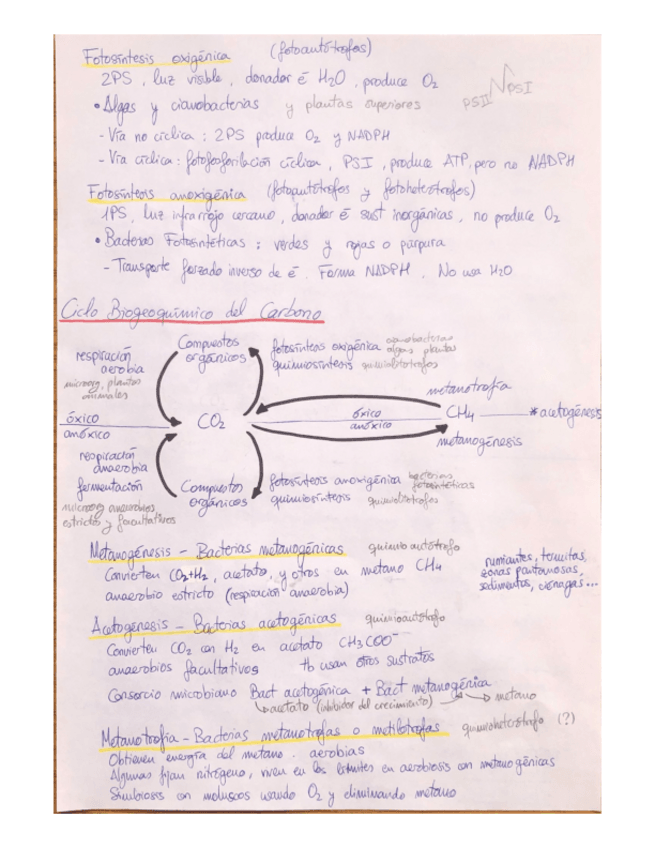 Fotosíntesis oxigénica (fotoautótrofas)
2PS, luz visible, donador é H2O, produce O2
• Algas y cianobacterias y plantas superiores PSII PSI
- Vía no cíclica : 2PS produce O2 y NADPH
- Vía cíclica : fotofosforilación cíclica, PSI, produce ATP, pero no NADPH
Fotosíntesis anoxigénica (fotoautótrofos y fotoheterótrofos)
1PS, luz infrarrojo cercano, donador é sust inorgánicas, no produce O2
• Bacterias Fotosintéticas : verdes y rojas o púrpura
- Transporte forzado inverso de é. Forma NADPH. No usa H2O
Ciclo Biogeoquímico del Carbono
respiración aerobia
microorg, plantas animales
Compuestos orgánicos
fotosíntesis oxigénica cianobacterias algas plantas
quimiosíntesis quimiolitotrofos
metanotrofia
óxico
anóxico
CO2
óxico
anóxico
CH4
* acetogénesis
metanogénesis
respiración anaerobia
fermentación
microorg anaerobios estrictos y facultativos
Compuestos orgánicos
fotosíntesis anoxigénica bacterias fotosintéticas
quimiosíntesis quimiolitotrofos
Metanogénesis - Bacterias metanogénicas quimio autótrofo
Convierten CO2+H2, acetato, y otros en metano CH4
anaerobio estricto (respiración anaerobia)
rumiantes, termitas,
zonas pantanosas,
sedimentos, ciénagas...
Acetogénesis - Bacterias acetogénicas quimioautótrofo
Convierten CO2 con H2 en acetato CH3COO-
anaerobios facultativos tb usan otros sustratos
Consorcio microbiano Bact acetogénica + Bact metanogénica
acetato (inhibidor del crecimiento) metano
Metanotrofia - Bacterias metanotrofas o metilotrofas quimioheterótrofo (?)
Obtienen energía del metano. aerobias
Algunas fijan nitrógeno, viven en los límites en aerobiosis con metanogénicas
Simbiosis con moluscos usando O2 y eliminando metano